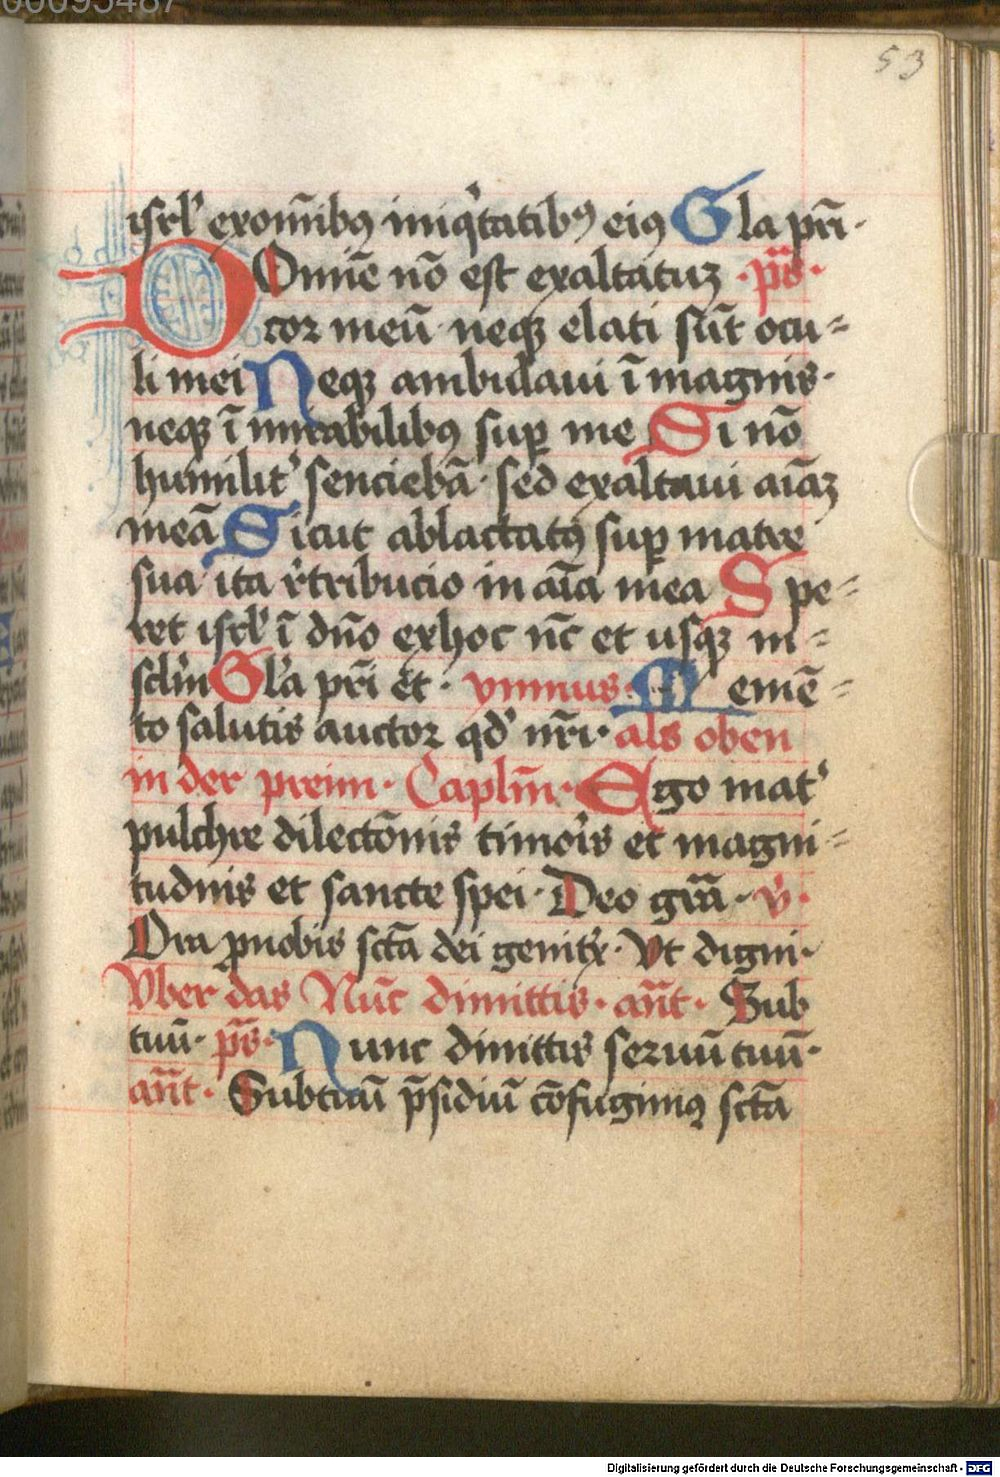 00095487
53
isrl' exom̄ibus iniq'tatibus eius Gla pr̄i·
Domīe nō est exaltatuz ·p̄s·
cor meū neqz elati sūt ocu=
li mei Neqz ambulaui ī magnis·
neqz ī mirabilibus sup me Si nō
humilit' senciebā· sed exaltaui aīaz
meā Sicut ablactatus sup matre
sua· ita r'tribucio in aīa mea Spe=
ret isrl' ī dn̄o exhoc nc̄ et usqz in=
sclm̄ Gl'a pr̄i et· ymnus· Memē=
to salutis auctor qd' nr̄i· als oben
in der preim· Caplm̄· Ego mat'
pulchre dilectōnis timor's et magni=
tudnis et sancte spei· Deo gr̄a· v'·
Ora pnobis sctā dei genitx· Vt digni·
Vber das Nūc dimittis· an̄t· Sub
tuū· p̄s· Nunc dimittis seruū tuū·
an̄t· Subtuū p̄sidiū cōfugimus sctā
Digitalisierung gefördert durch die Deutsche Forschungsgemeinschaft - DFG